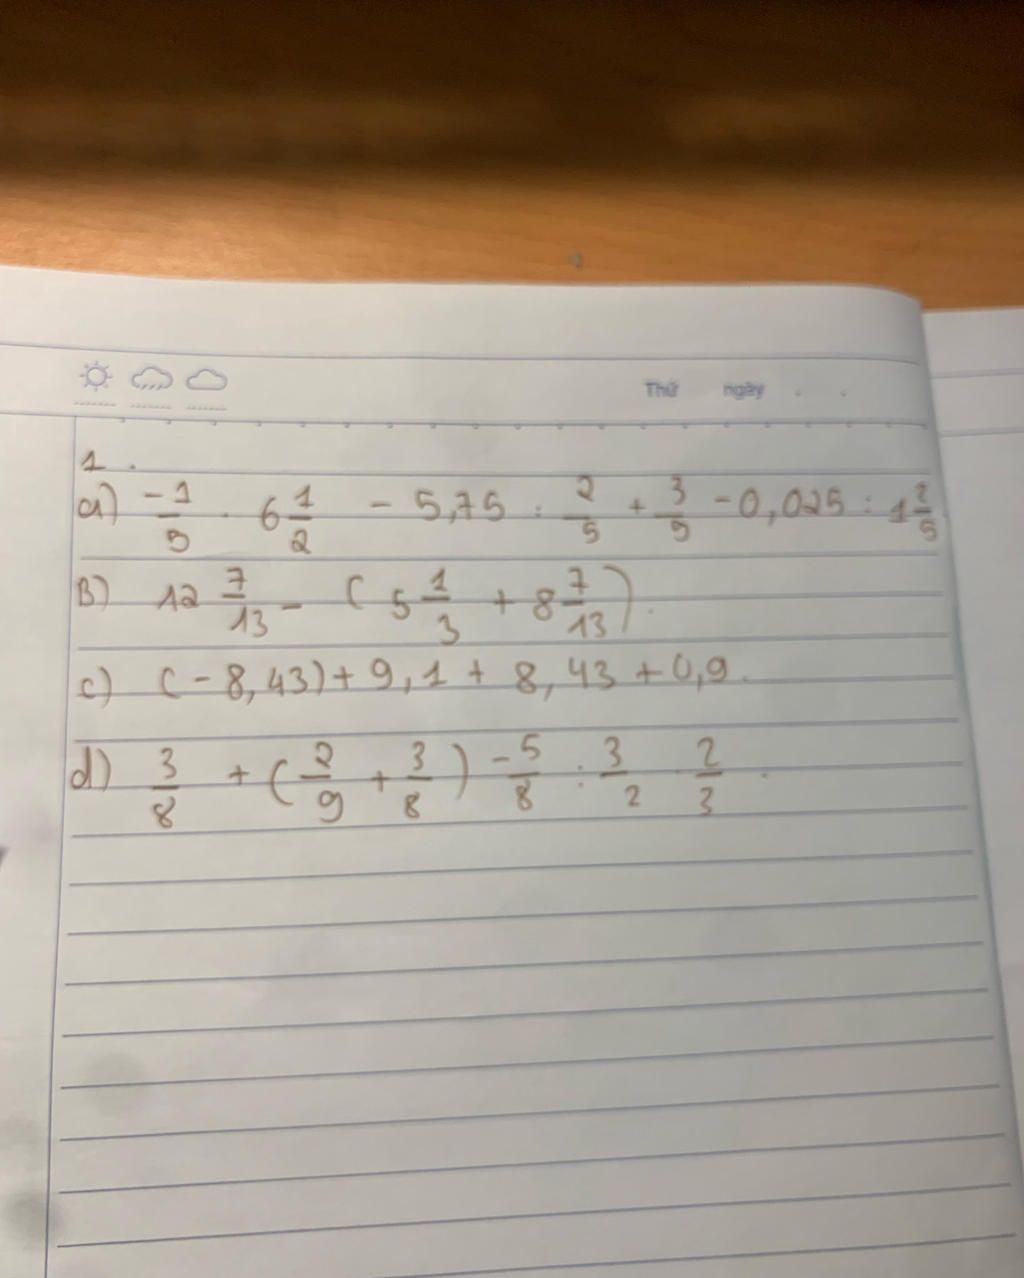 Thứ ngày . .
1.
a) -1/5 . 6 1/2 - 5,75 : 2/5 + 3/5 - 0,025 : 1 2/5
B) 12 7/13 - ( 5 1/3 + 8 7/13 ).
c) (-8,43) + 9,1 + 8,43 + 0,9.
d) 3/8 + ( 2/9 + 3/8 ) -5/8 : 3/2 . 2/3 .